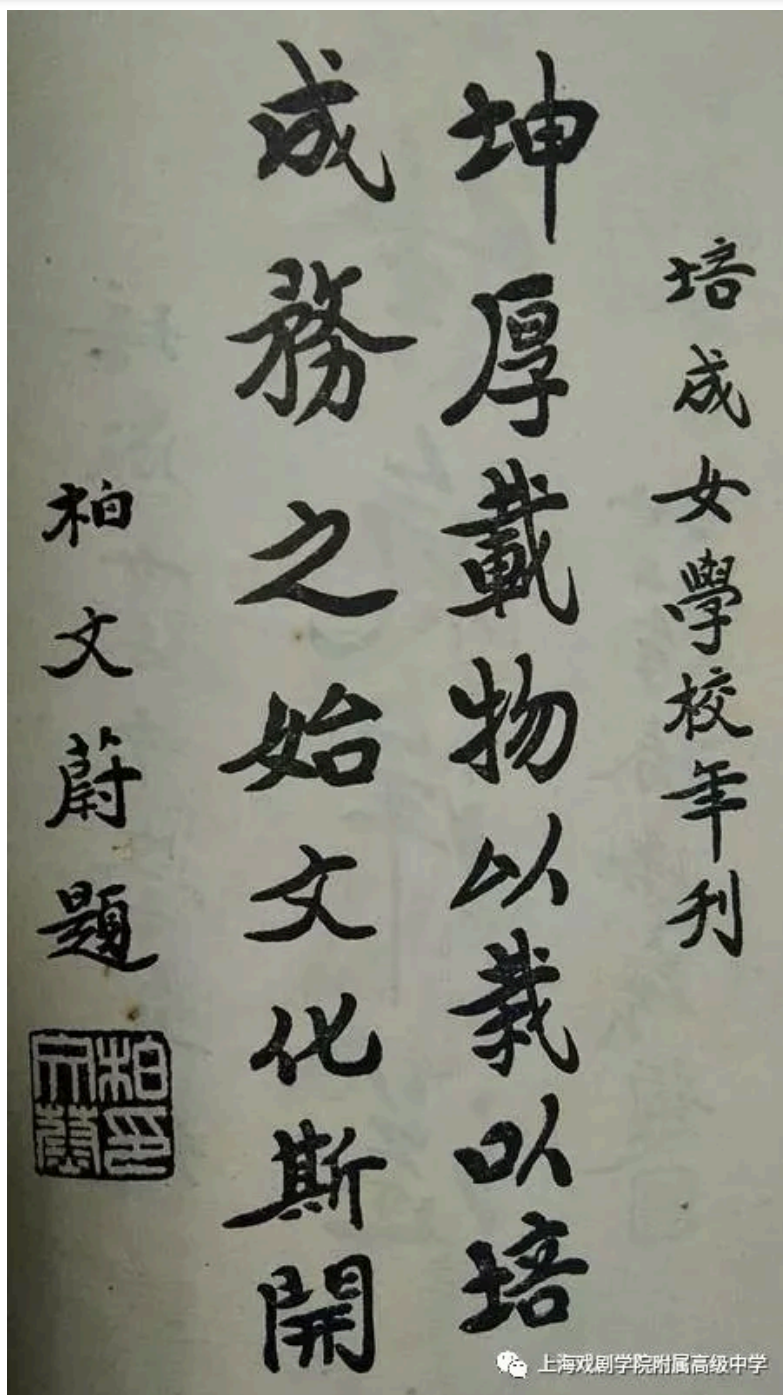 培成女學校年刊
坤厚載物以栽以培
成務之始文化斯開
柏文蔚題
柏文蔚印
上海戏剧学院附属高级中学